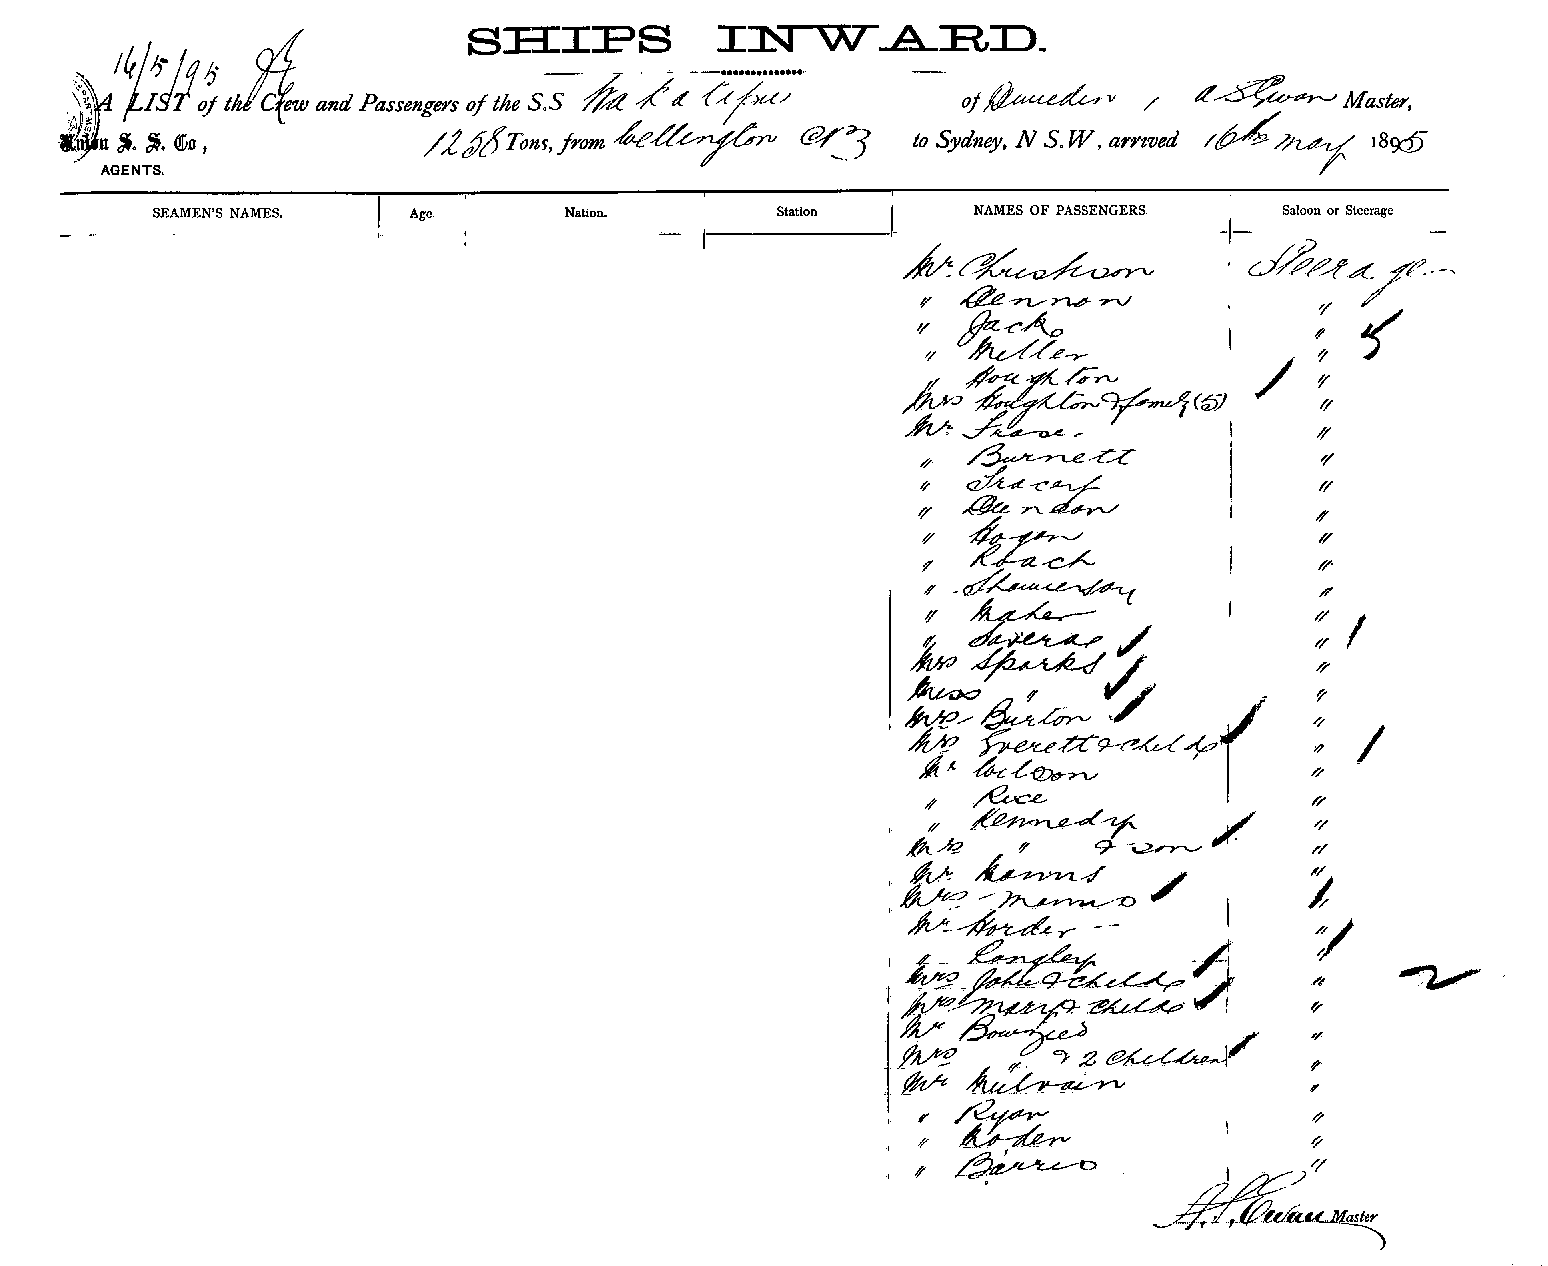 SHIPS INWARD.
16/5/95
A LIST of the Crew and Passengers of the S.S Wakatipu of Dunedin, A S Ewan Master,
Union S. S. Co, 1258 Tons, from Wellington NZ to Sydney, N S.W, arrived 16th May 1895
AGENTS.
SEAMEN'S NAMES. Age. Nation. Station NAMES OF PASSENGERS Saloon or Steerage
Mr. Christison Steerage
" Dennon "
" Jack " 5
" Miller "
" Houghton "
Mrs Houghton & family (5) "
Mr. Frase. "
" Burnett "
" Tracey "
" Denson "
" Hogan "
" Roach "
" "
" Maher "
" "
Mrs Sparks "
Miss " "
Mrs Burton "
Mrs Everett & child "
Mr Wilson "
" Rice "
" Kennedy "
Mrs " & son "
Mr. Manns "
Mrs Manns "
Mr Horder "
" Langley "
Mrs John & child " 2
Mrs Mary & child "
Mr "
Mrs " & 2 Children "
Mr Milvain "
" Ryan "
" Roden "
" Barris "
A. S. Ewan Master